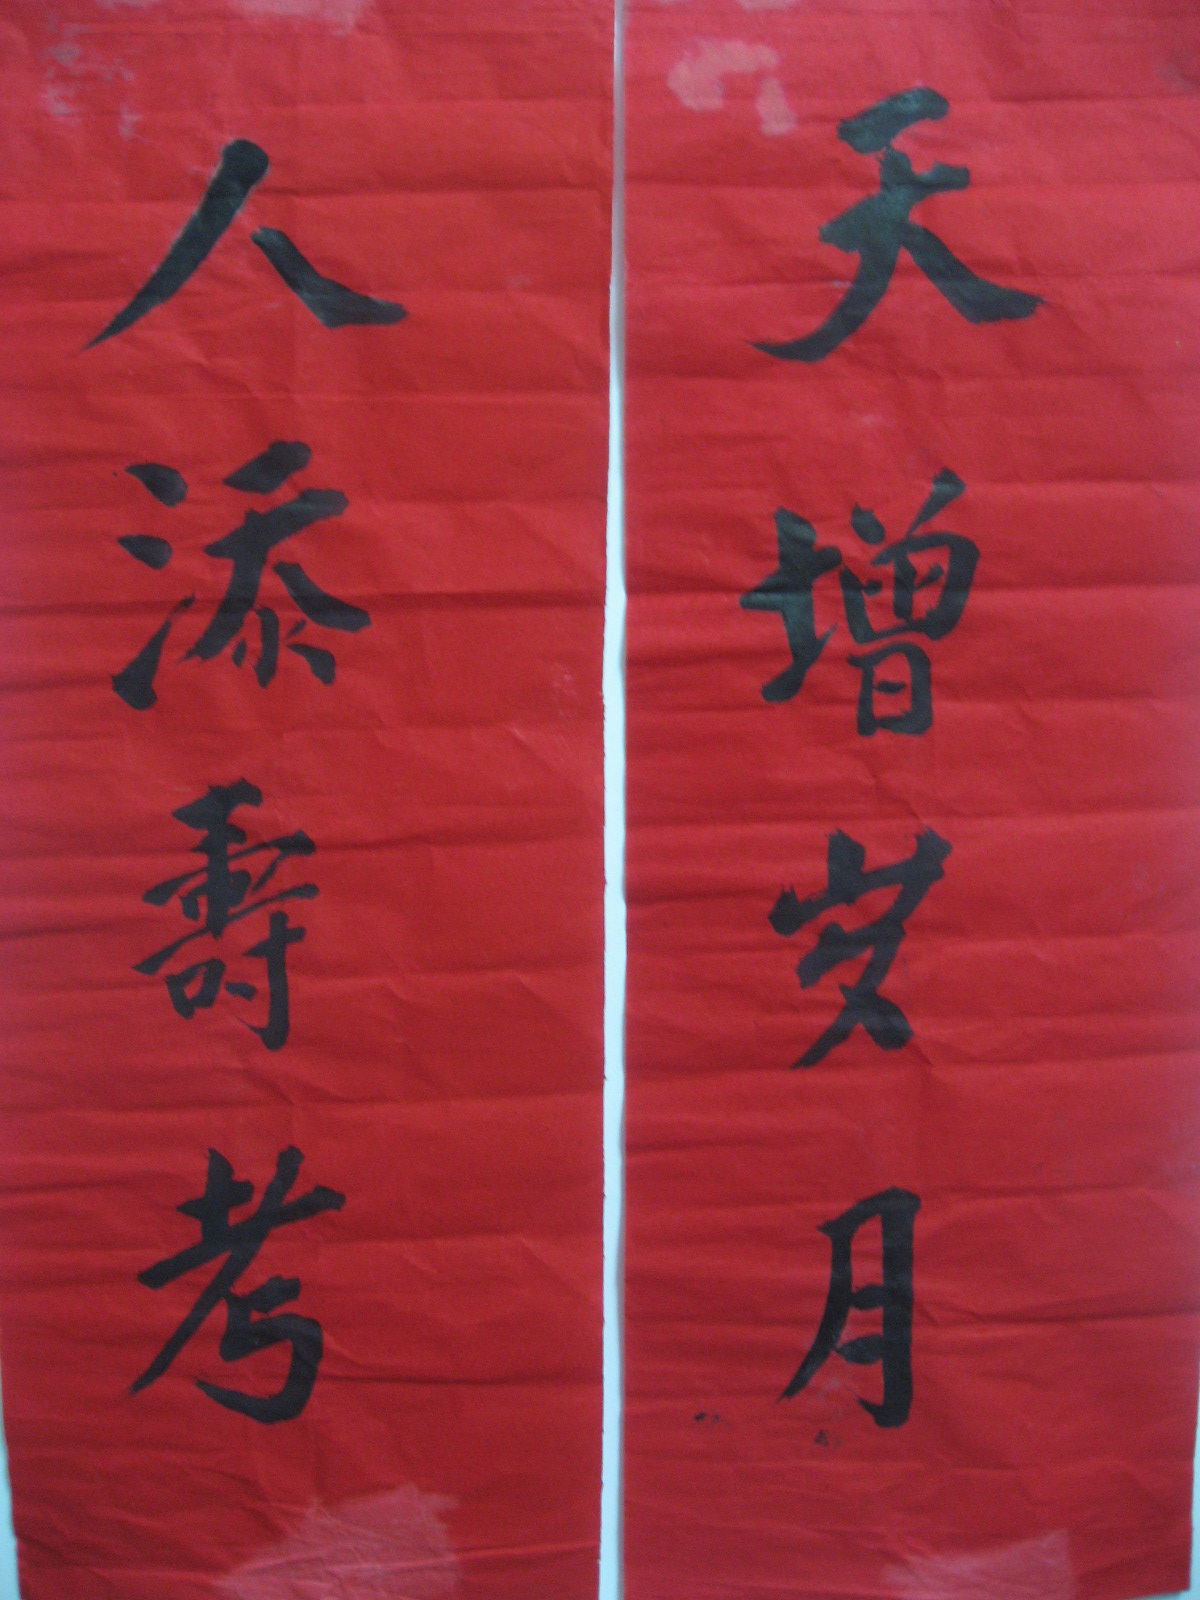 天增岁月
人添壽考